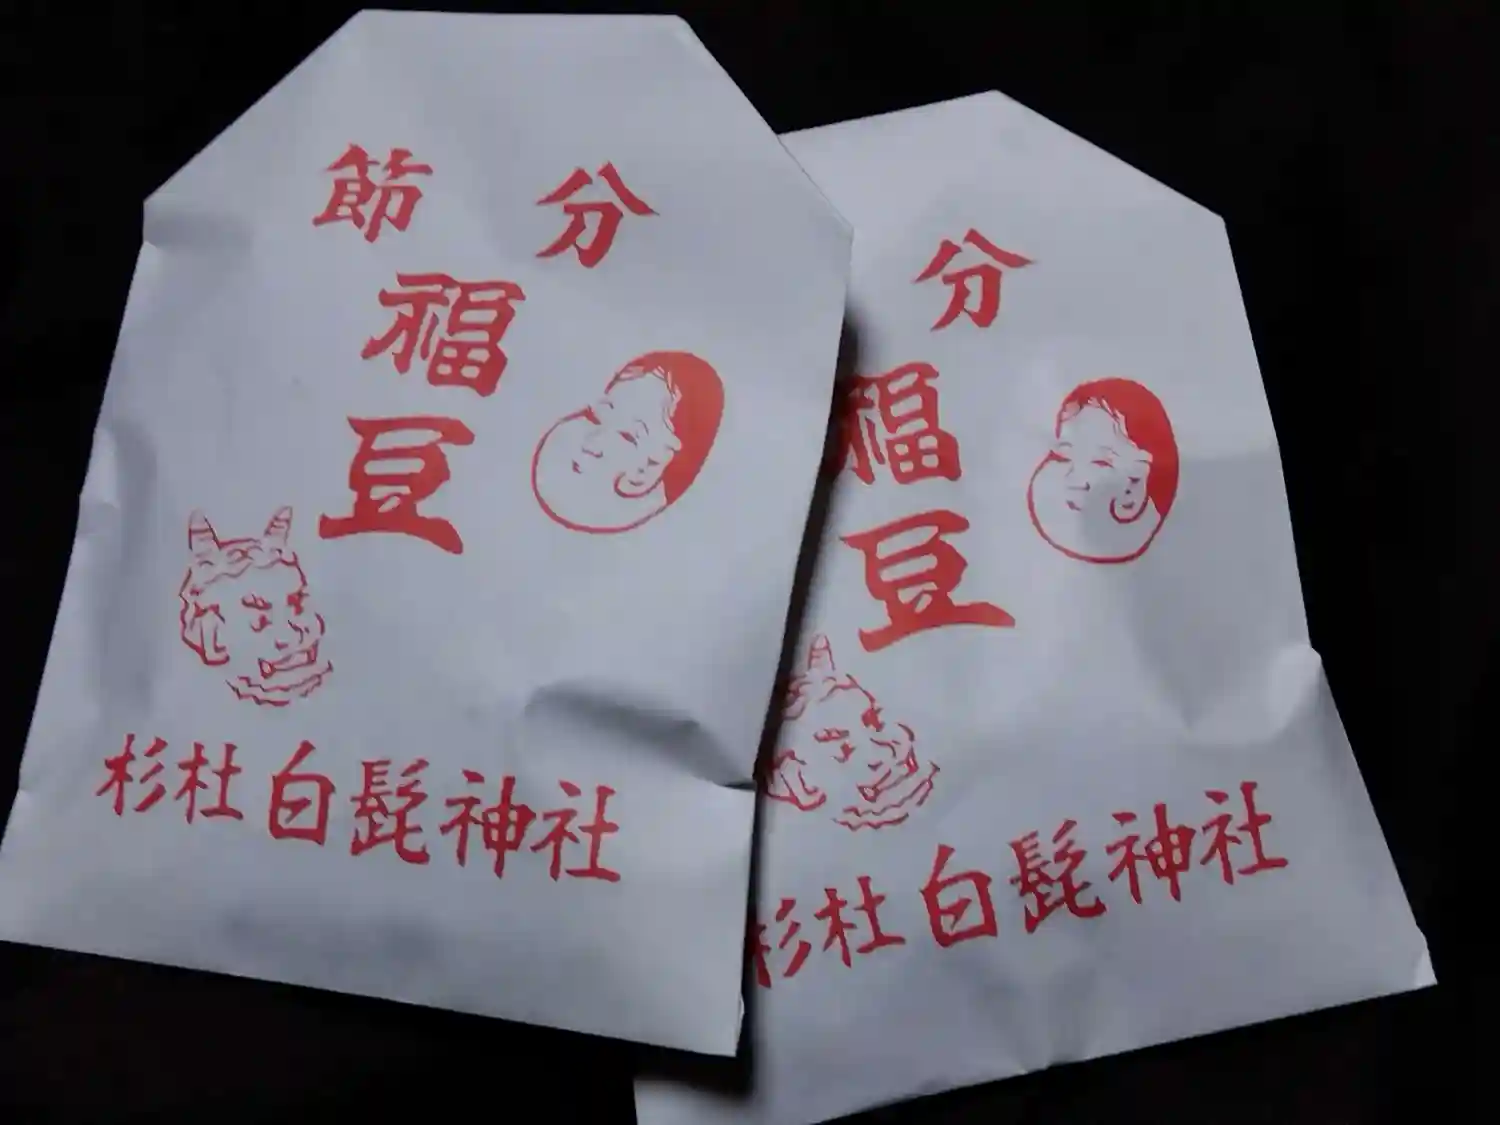 節分
福
豆
杉杜白髭神社
分
福
豆
杉杜白髭神社